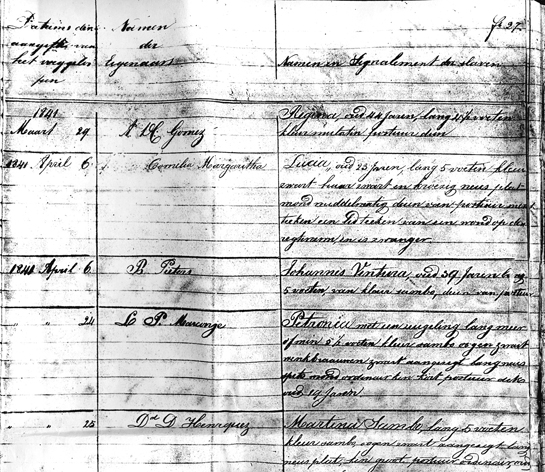 fo 27.
Datums der Namen
aangifte van der
het wegloo Eigenaars Namen en Signalement der slaven
pen
1841 Regina, oud 44 Jaren, lang 4½ voeten
Maart 29 A D C Gomez kleur mulatin postuur dun
1841 April 6 Cornelia Margaritha Lucia, oud 25 Jaren, lang 5 voeten kleur
zwart haar zwart en kroezig neus plat
mond middelmatig, dun van postuur met
teeken een lidteeken van een wond op de
regterarm en is zwanger.
1841 April 6. B. Pieters Johannis Ventura, oud 39 Jaren lang
5 voeten, van kleur sambo, dun van postuur
" " 24 L P. Marenge Petronia met een zuigeling lang meer
of min 5½ voeten kleur sambo oogen zwart
winkbraauwen zwart aangezigt lang neus
spits mond ordinair kin kort postuur dik
oud 19 Jaren
" " 25 Dl D Henriquez Martina Sambo, lang 5 voeten
kleur sambo oogen zwart aangezigt lang
neus plat, kin groot, postuur ordinair